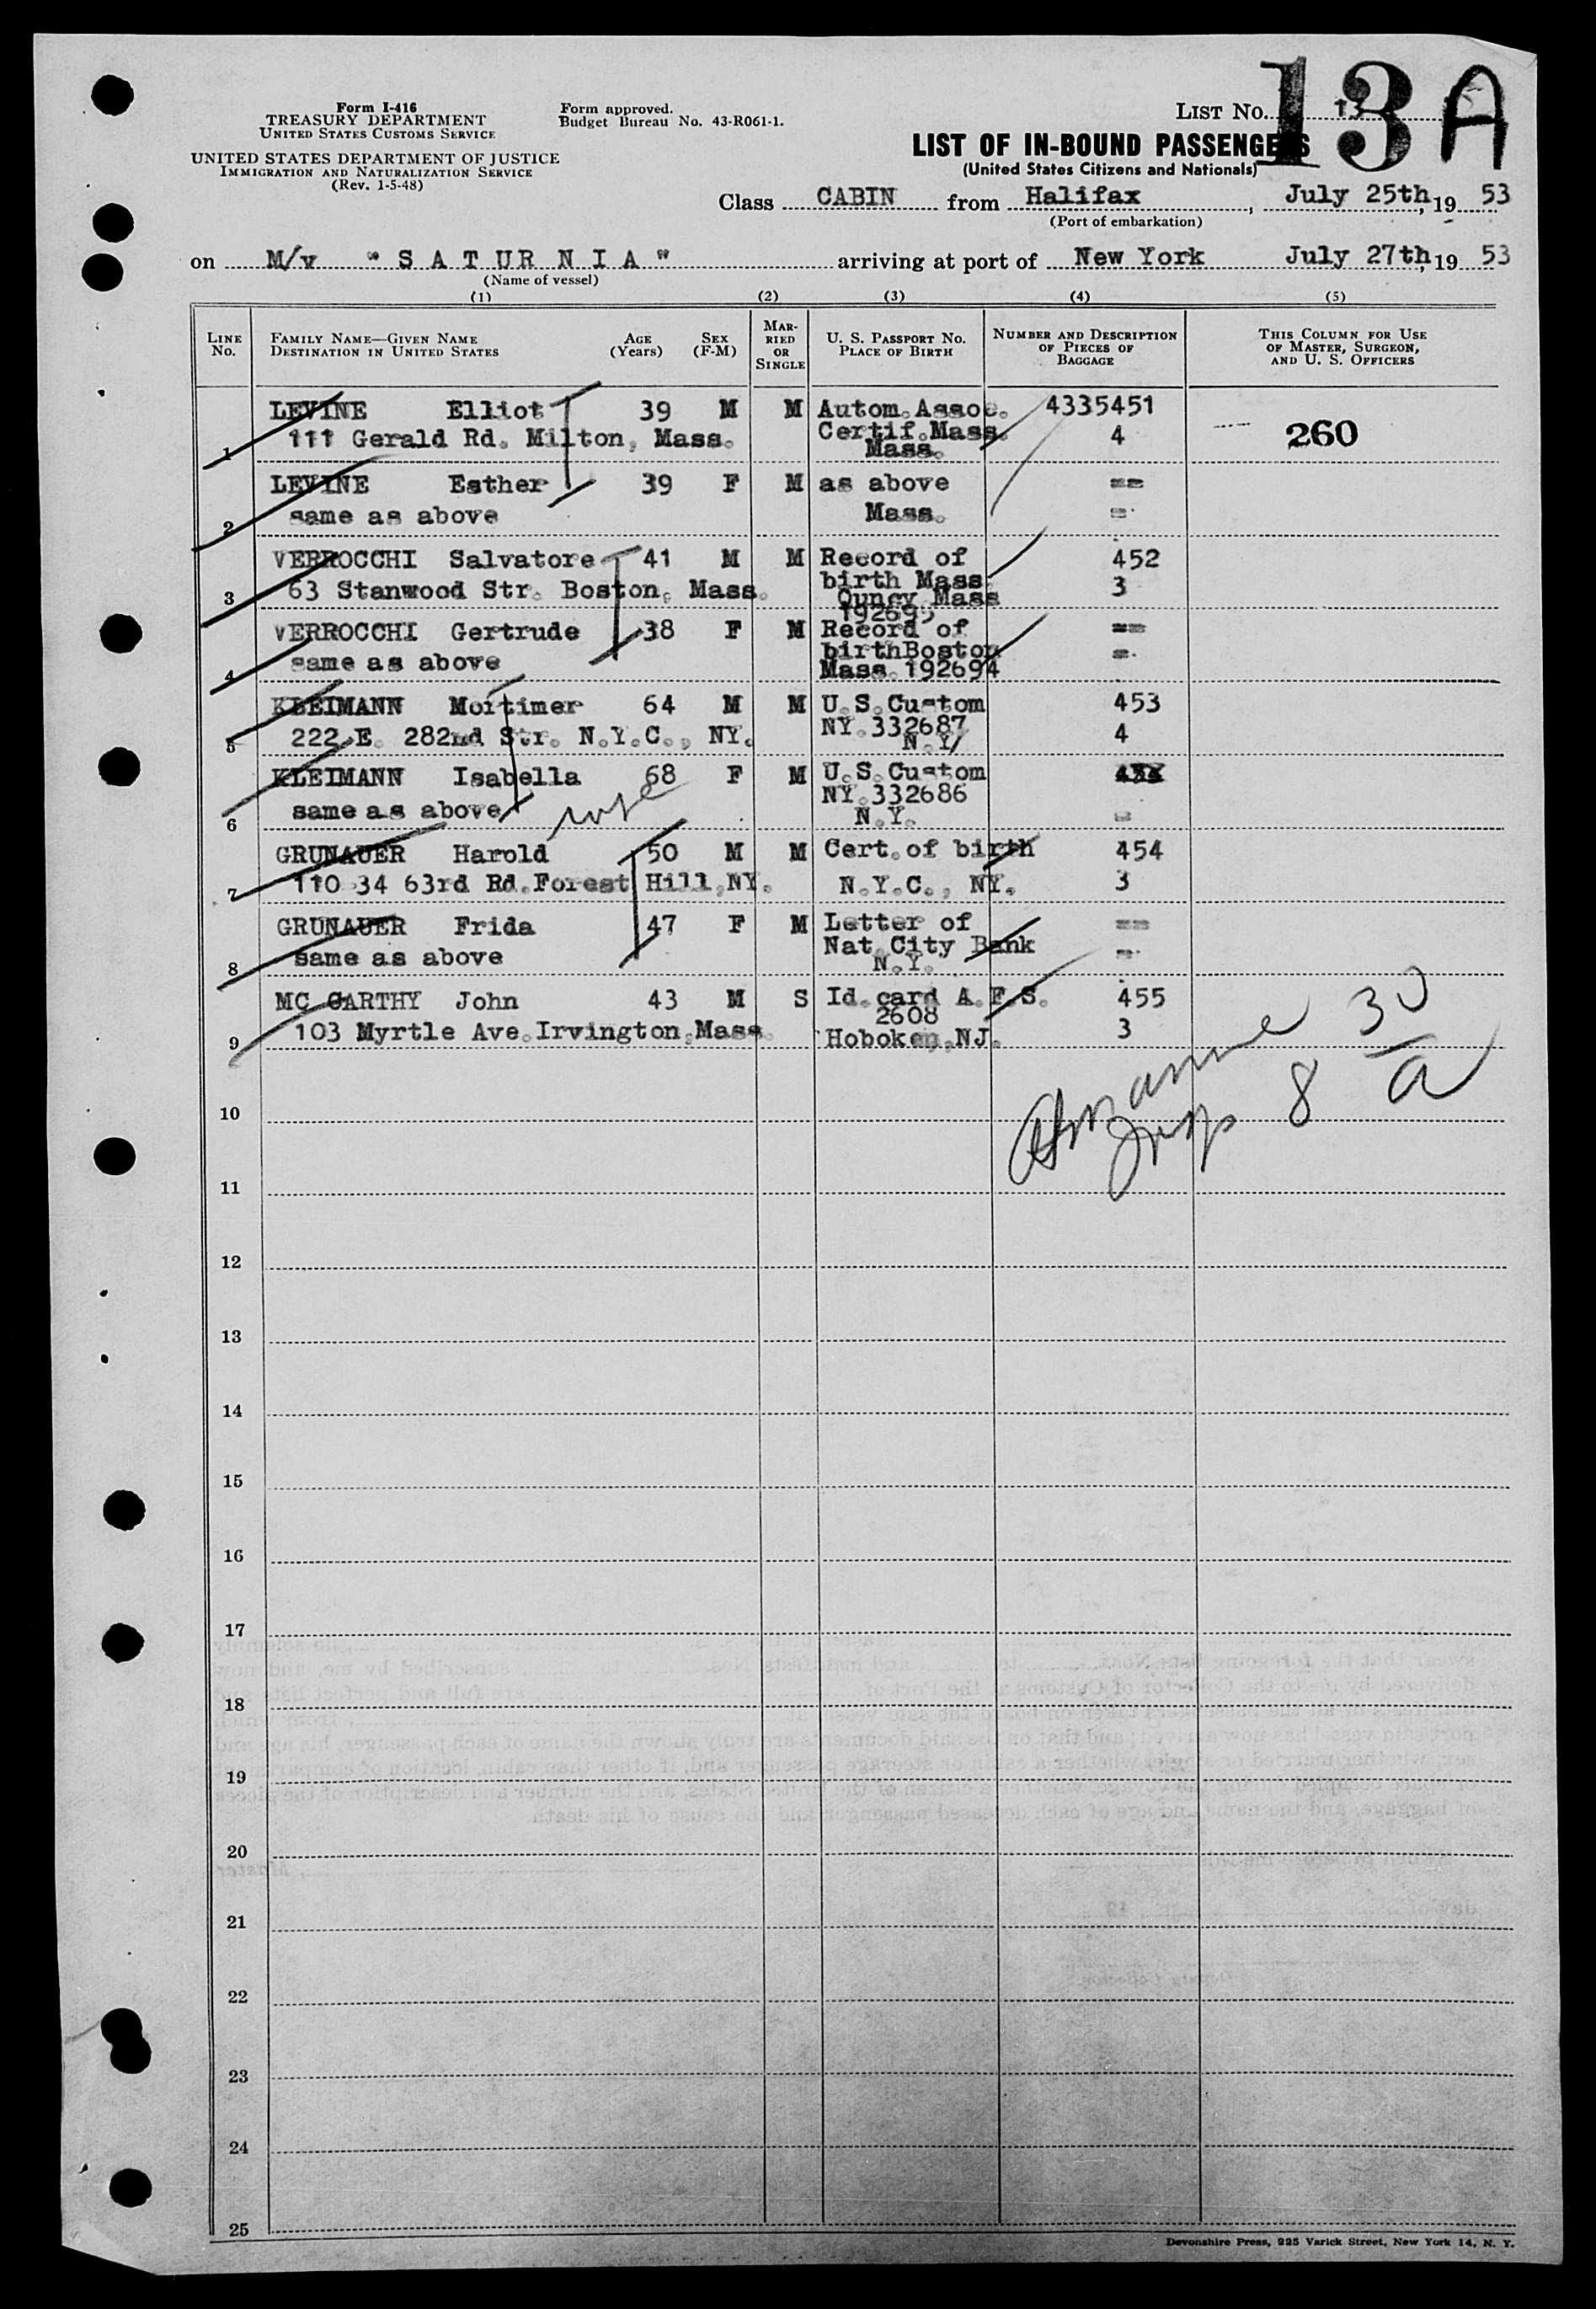 Form I-416
TREASURY DEPARTMENT
UNITED STATES CUSTOMS SERVICE
UNITED STATES DEPARTMENT OF JUSTICE
IMMIGRATION AND NATURALIZATION SERVICE
(Rev. 1-5-48)
Form approved.
Budget Bureau No. 43-R061-1.
LIST NO. 13
13 A
LIST OF IN-BOUND PASSENGERS
(United States Citizens and Nationals)
Class CABIN from Halifax, July 25th, 19 53
(Port of embarkation)
on M/v "S A T U R N I A" arriving at port of New York July 27th, 19 53
(Name of vessel)
(1) (2) (3) (4) (5)
LINE NO.
FAMILY NAME—GIVEN NAME
DESTINATION IN UNITED STATES
AGE (Years)
SEX (F-M)
MARRIED OR SINGLE
U. S. PASSPORT NO.
PLACE OF BIRTH
NUMBER AND DESCRIPTION OF PIECES OF BAGGAGE
THIS COLUMN FOR USE OF MASTER, SURGEON, AND U. S. OFFICERS
LEVINE Elliot 39 M M Autom.Assoc. 4335451
1 111 Gerald Rd. Milton, Mass. Certif.Mass. 4 260
Mass.
LEVINE Esther 39 F M as above ==
2 same as above Mass. =.
VERROCCHI Salvatore 41 M M Record of 452
3 63 Stanwood Str. Boston, Mass. birth Mass. 3
Quncy Mass
192695
VERROCCHI Gertrude 38 F M Record of ==
4 same as above birthBoston =.
Mass. 192694
KLEIMANN Mortimer 64 M M U.S.Custom 453
5 222 E. 282nd Str. N.Y.C., NY. NY.332687 4
N.Y/
KLEIMANN Isabella 68 F M U.S.Custom
6 same as above NY.332686 =
N.Y.
GRUNAUER Harold 50 M M Cert.of birth 454
7 110 34 63rd Rd.Forest Hill,NY. N.Y.C., NY. 3
GRUNAUER Frida 47 F M Letter of ==
8 same as above Nat.City Bank =.
N.Y.
MC CARTHY John 43 M S Id.card A.F.S. 455
2608
9 103 Myrtle Ave.Irvington,Mass. Hoboken,NJ. 3
30
8 a
10
11
12
13
14
15
16
17
18
19
20
21
22
23
24
25
Devonshire Press, 225 Varick Street, New York 14, N. Y.